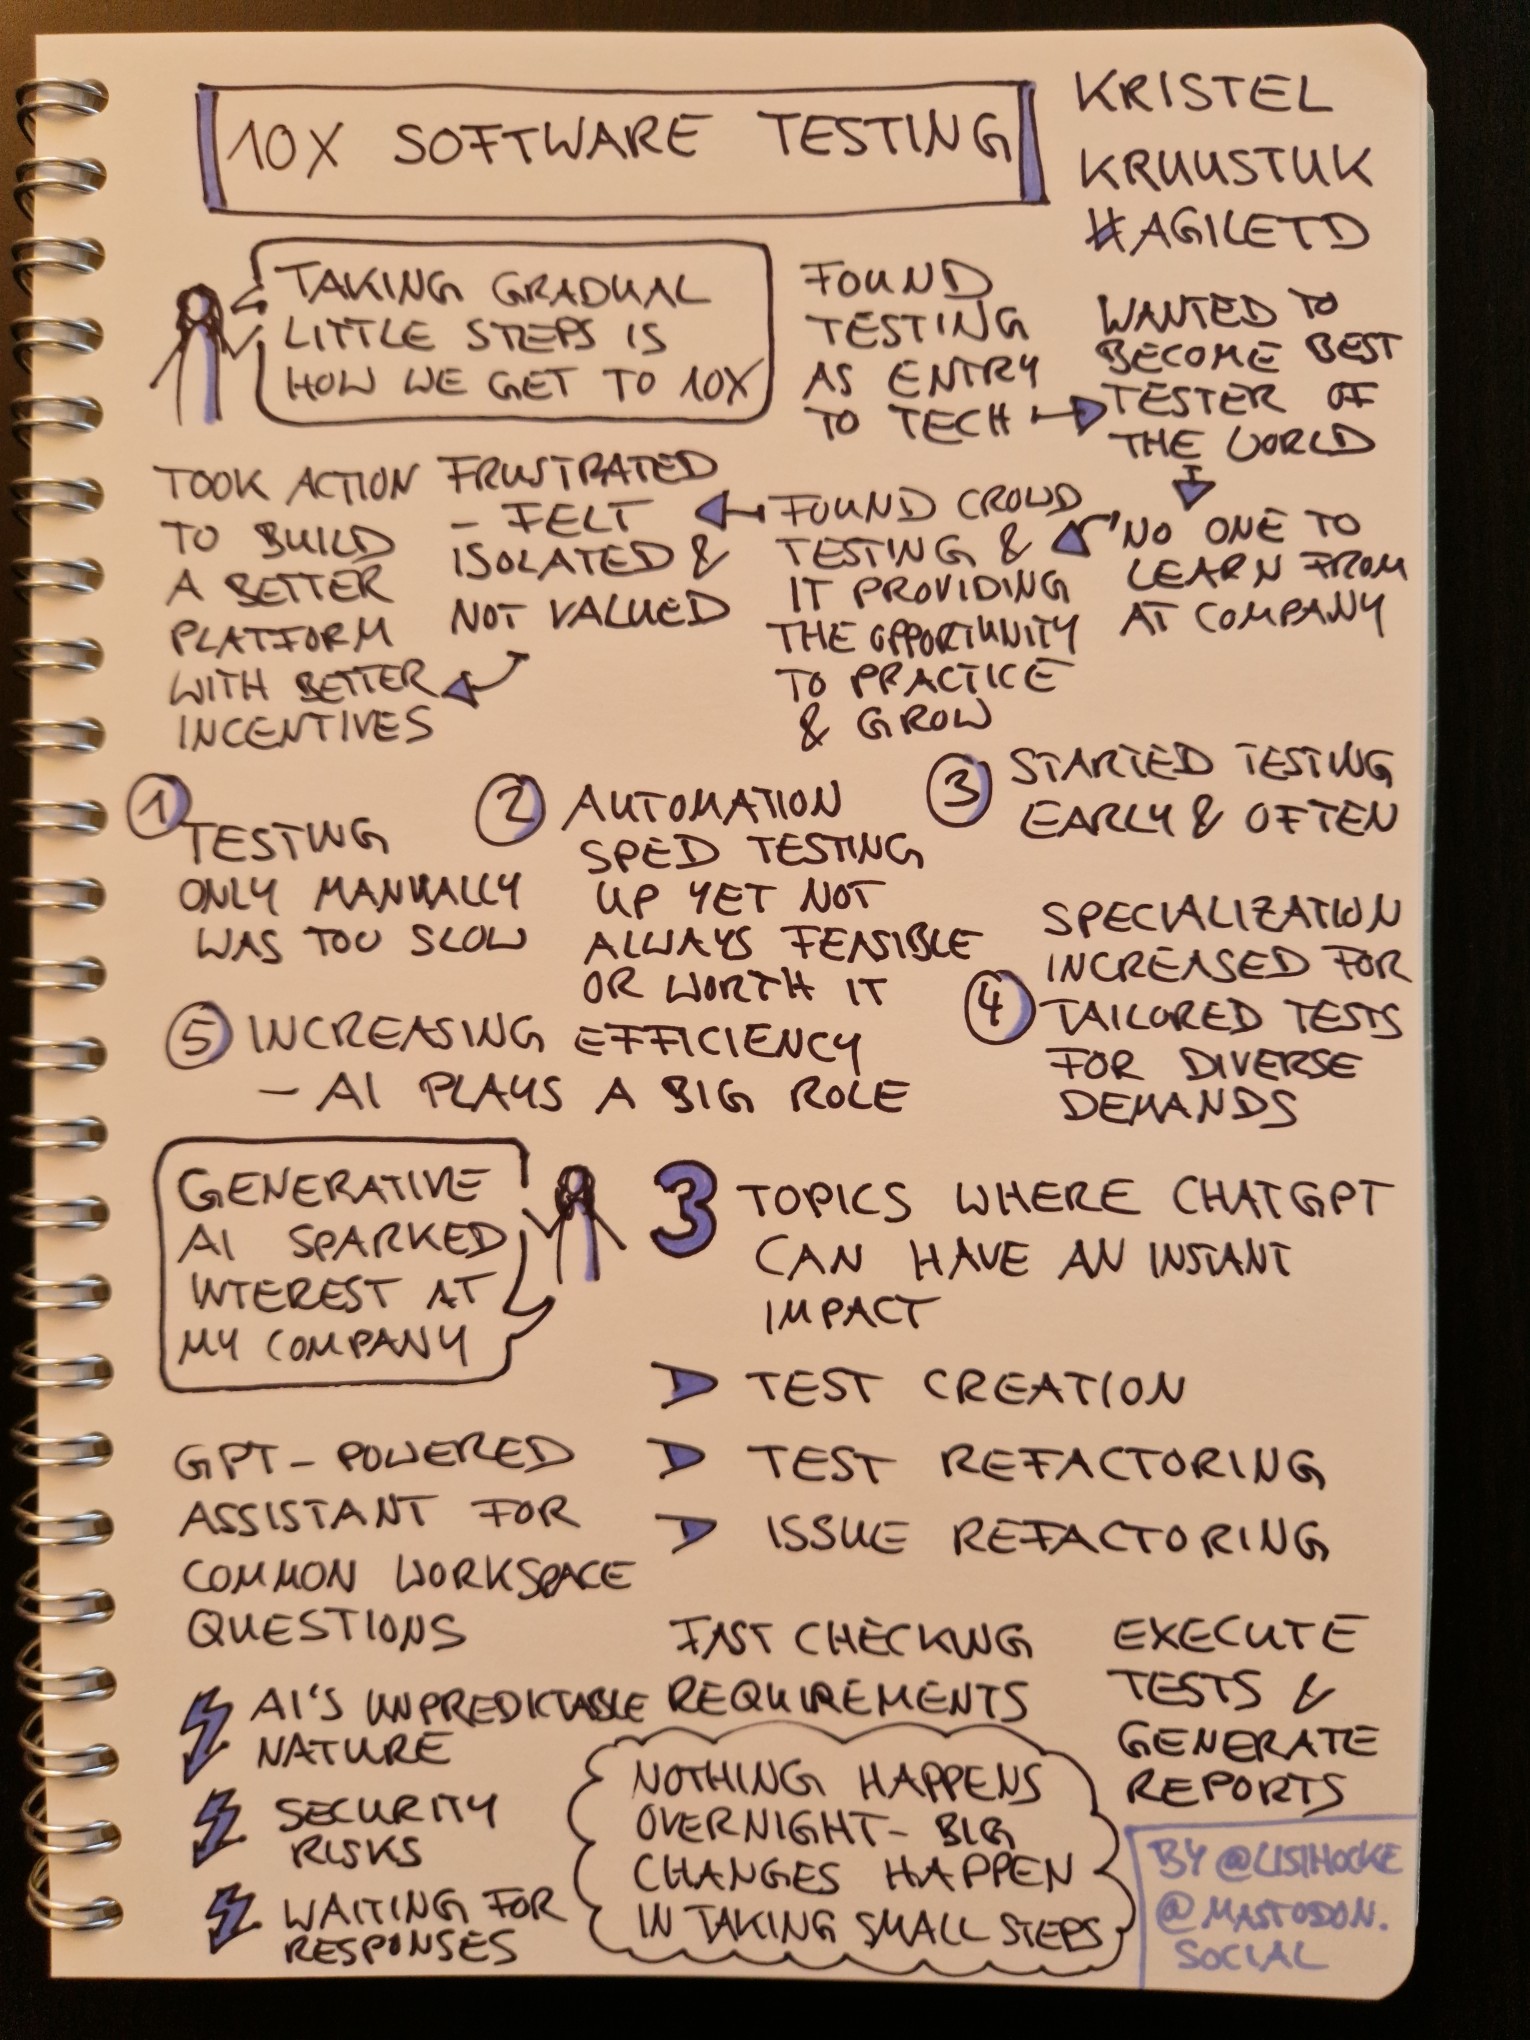 10X SOFTWARE TESTING
KRISTEL
KRUUSTUK
#AGILETD
TAKING GRADUAL
LITTLE STEPS IS
HOW WE GET TO 10X
FOUND
TESTING
AS ENTRY
TO TECH
WANTED TO
BECOME BEST
TESTER OF
THE WORLD
NO ONE TO
LEARN FROM
AT COMPANY
FOUND CROWD
TESTING &
IT PROVIDING
THE OPPORTUNITY
TO PRACTICE
& GROW
FRUSTRATED
- FELT
ISOLATED &
NOT VALUED
TOOK ACTION
TO BUILD
A BETTER
PLATFORM
WITH BETTER
INCENTIVES
1
TESTING
ONLY MANUALLY
WAS TOO SLOW
2 AUTOMATION
SPED TESTING
UP YET NOT
ALWAYS FEASIBLE
OR WORTH IT
3 STARTED TESTING
EARLY & OFTEN
SPECIALIZATION
INCREASED FOR
4 TAILORED TESTS
FOR DIVERSE
DEMANDS
5 INCREASING EFFICIENCY
- AI PLAYS A BIG ROLE
GENERATIVE
AI SPARKED
INTEREST AT
MY COMPANY
3 TOPICS WHERE CHATGPT
CAN HAVE AN INSTANT
IMPACT
TEST CREATION
TEST REFACTORING
ISSUE REFACTORING
GPT-POWERED
ASSISTANT FOR
COMMON WORKSPACE
QUESTIONS
FAST CHECKING
REQUIREMENTS
EXECUTE
TESTS &
GENERATE
REPORTS
AI'S UNPREDICTABLE
NATURE
SECURITY
RISKS
WAITING FOR
RESPONSES
NOTHING HAPPENS
OVERNIGHT - BIG
CHANGES HAPPEN
IN TAKING SMALL STEPS
BY @LISIHOCKE
@MASTODON.
SOCIAL